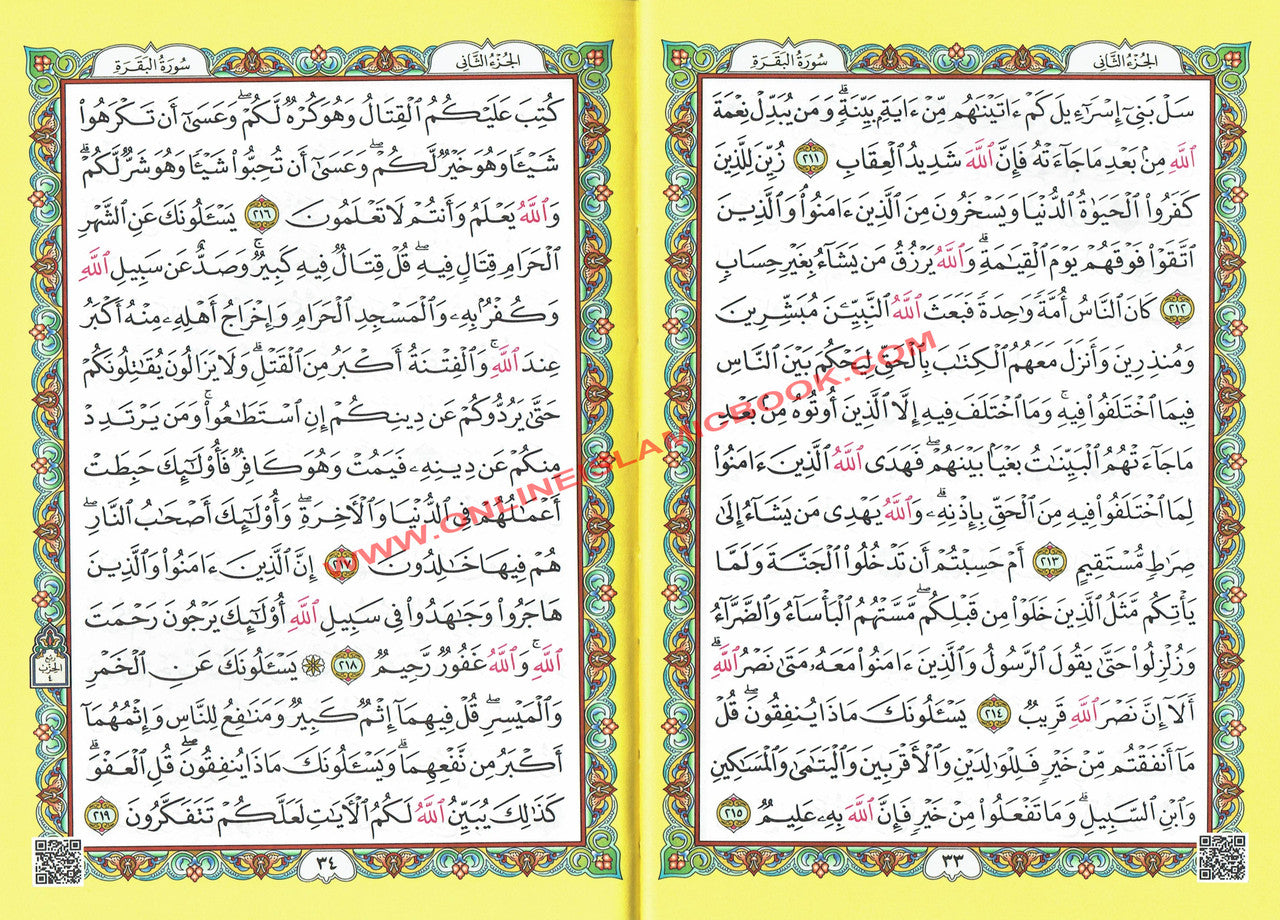 الجزء الثاني
سورة البقرة
سَلْ بَنِىٓ إِسْرَٰٓءِيلَ كَمْ ءَاتَيْنَٰهُم مِّنْ ءَايَةٍۭ بَيِّنَةٍۗ وَمَن يُبَدِّلْ نِعْمَةَ
ٱللَّهِ مِنۢ بَعْدِ مَا جَآءَتْهُ فَإِنَّ ٱللَّهَ شَدِيدُ ٱلْعِقَابِ ٢١١ زُيِّنَ لِلَّذِينَ
كَفَرُوا۟ ٱلْحَيَوٰةُ ٱلدُّنْيَا وَيَسْخَرُونَ مِنَ ٱلَّذِينَ ءَامَنُوا۟ۘ وَٱلَّذِينَ
ٱتَّقَوْا۟ فَوْقَهُمْ يَوْمَ ٱلْقِيَٰمَةِۗ وَٱللَّهُ يَرْزُقُ مَن يَشَآءُ بِغَيْرِ حِسَابٍ
٢١٢ كَانَ ٱلنَّاسُ أُمَّةً وَٰحِدَةً فَبَعَثَ ٱللَّهُ ٱلنَّبِيِّۦنَ مُبَشِّرِينَ
وَمُنذِرِينَ وَأَنزَلَ مَعَهُمُ ٱلْكِتَٰبَ بِٱلْحَقِّ لِيَحْكُمَ بَيْنَ ٱلنَّاسِ
فِيمَا ٱخْتَلَفُوا۟ فِيهِۚ وَمَا ٱخْتَلَفَ فِيهِ إِلَّا ٱلَّذِينَ أُوتُوهُ مِنۢ بَعْدِ
مَا جَآءَتْهُمُ ٱلْبَيِّنَٰتُ بَغْيًۢا بَيْنَهُمْۖ فَهَدَى ٱللَّهُ ٱلَّذِينَ ءَامَنُوا۟
لِمَا ٱخْتَلَفُوا۟ فِيهِ مِنَ ٱلْحَقِّ بِإِذْنِهِۦۗ وَٱللَّهُ يَهْدِى مَن يَشَآءُ إِلَىٰ
صِرَٰطٍ مُّسْتَقِيمٍ ٢١٣ أَمْ حَسِبْتُمْ أَن تَدْخُلُوا۟ ٱلْجَنَّةَ وَلَمَّا
يَأْتِكُم مَّثَلُ ٱلَّذِينَ خَلَوْا۟ مِن قَبْلِكُمۖ مَّسَّتْهُمُ ٱلْبَأْسَآءُ وَٱلضَّرَّآءُ
وَزُلْزِلُوا۟ حَتَّىٰ يَقُولَ ٱلرَّسُولُ وَٱلَّذِينَ ءَامَنُوا۟ مَعَهُۥ مَتَىٰ نَصْرُ ٱللَّهِۗ
أَلَآ إِنَّ نَصْرَ ٱللَّهِ قَرِيبٌ ٢١٤ يَسْـَٔلُونَكَ مَاذَا يُنفِقُونَۖ قُلْ
مَآ أَنفَقْتُم مِّنْ خَيْرٍ فَلِلْوَٰلِدَيْنِ وَٱلْأَقْرَبِينَ وَٱلْيَتَٰمَىٰ وَٱلْمَسَٰكِينِ
وَٱبْنِ ٱلسَّبِيلِۗ وَمَا تَفْعَلُوا۟ مِنْ خَيْرٍ فَإِنَّ ٱللَّهَ بِهِۦ عَلِيمٌ ٢١٥
٣٣
الجزء الثاني
سورة البقرة
كُتِبَ عَلَيْكُمُ ٱلْقِتَالُ وَهُوَ كُرْهٌ لَّكُمْۖ وَعَسَىٰٓ أَن تَكْرَهُوا۟
شَيْـًٔا وَهُوَ خَيْرٌ لَّكُمْۖ وَعَسَىٰٓ أَن تُحِبُّوا۟ شَيْـًٔا وَهُوَ شَرٌّ لَّكُمْۗ
وَٱللَّهُ يَعْلَمُ وَأَنتُمْ لَا تَعْلَمُونَ ٢١٦ يَسْـَٔلُونَكَ عَنِ ٱلشَّهْرِ
ٱلْحَرَامِ قِتَالٍ فِيهِۖ قُلْ قِتَالٌ فِيهِ كَبِيرٌۚ وَصَدٌّ عَن سَبِيلِ ٱللَّهِ
وَكُفْرٌۢ بِهِۦ وَٱلْمَسْجِدِ ٱلْحَرَامِ وَإِخْرَاجُ أَهْلِهِۦ مِنْهُ أَكْبَرُ
عِندَ ٱللَّهِۚ وَٱلْفِتْنَةُ أَكْبَرُ مِنَ ٱلْقَتْلِۗ وَلَا يَزَالُونَ يُقَٰتِلُونَكُمْ
حَتَّىٰ يَرُدُّوكُمْ عَن دِينِكُمْ إِنِ ٱسْتَطَٰعُوا۟ۚ وَمَن يَرْتَدِدْ
مِنكُمْ عَن دِينِهِۦ فَيَمُتْ وَهُوَ كَافِرٌ فَأُو۟لَٰٓئِكَ حَبِطَتْ
أَعْمَٰلُهُمْ فِى ٱلدُّنْيَا وَٱلْءَاخِرَةِۖ وَأُو۟لَٰٓئِكَ أَصْحَٰبُ ٱلنَّارِۖ
هُمْ فِيهَا خَٰلِدُونَ ٢١٧ إِنَّ ٱلَّذِينَ ءَامَنُوا۟ وَٱلَّذِينَ
هَاجَرُوا۟ وَجَٰهَدُوا۟ فِى سَبِيلِ ٱللَّهِ أُو۟لَٰٓئِكَ يَرْجُونَ رَحْمَتَ
ٱللَّهِۚ وَٱللَّهُ غَفُورٌ رَّحِيمٌ ٢١٨ ۞ يَسْـَٔلُونَكَ عَنِ ٱلْخَمْرِ
وَٱلْمَيْسِرِۖ قُلْ فِيهِمَآ إِثْمٌ كَبِيرٌ وَمَنَٰفِعُ لِلنَّاسِ وَإِثْمُهُمَآ
أَكْبَرُ مِن نَّفْعِهِمَاۗ وَيَسْـَٔلُونَكَ مَاذَا يُنفِقُونَۖ قُلِ ٱلْعَفْوَۗ
كَذَٰلِكَ يُبَيِّنُ ٱللَّهُ لَكُمُ ٱلْءَايَٰتِ لَعَلَّكُمْ تَتَفَكَّرُونَ ٢١٩
٣٤
WWW.ONLINEISLAMICBOOK.COM